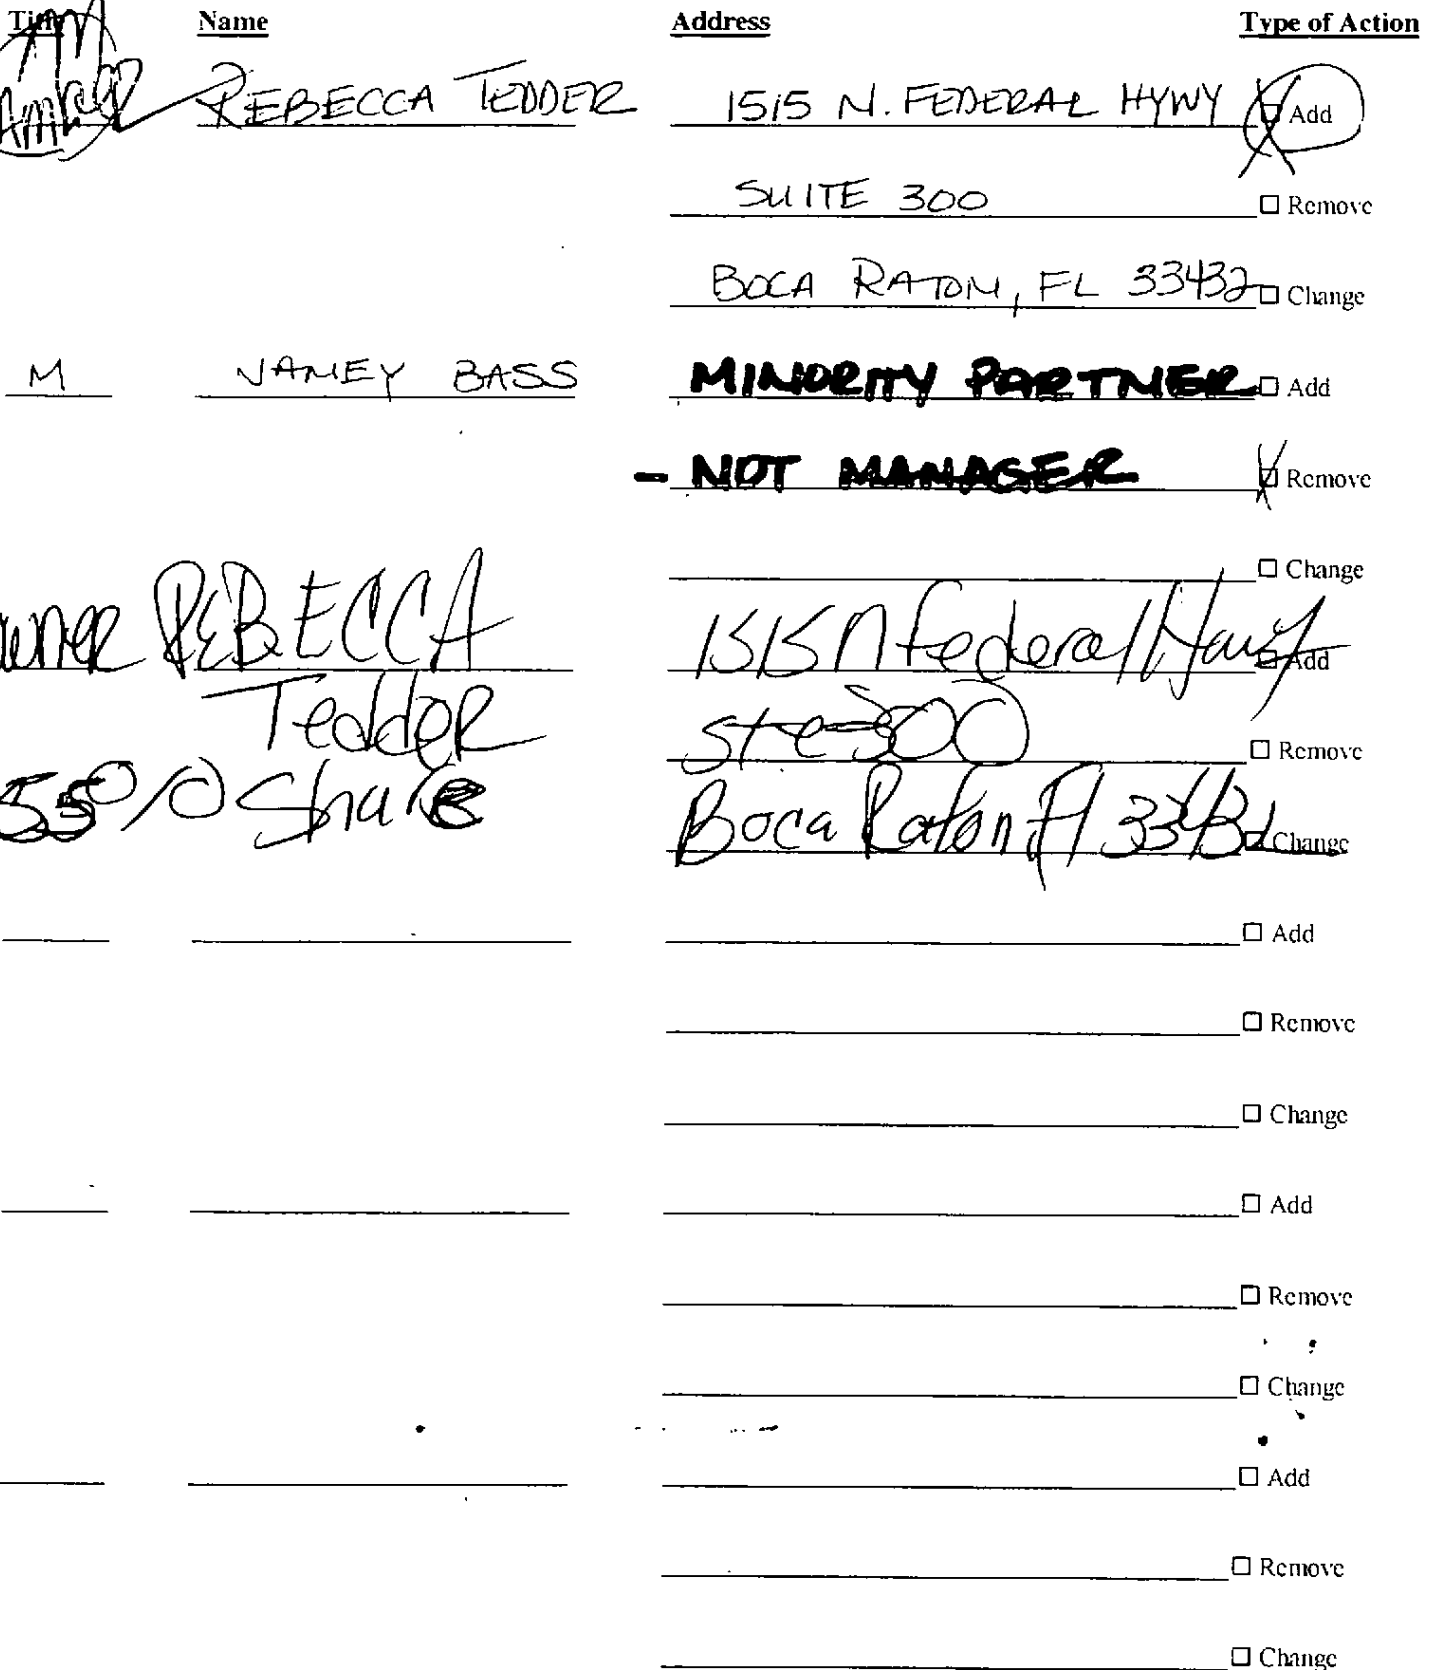 Title Name Address Type of Action
REBECCA TEDDER 1515 N. FEDERAL HYWY ☒ Add
SUITE 300 ☐ Remove
BOCA RATON, FL 33432 ☐ Change
M JANEY BASS MINORITY PARTNER ☐ Add
- NOT MANAGER ☒ Remove
☐ Change
wner REBECCA 1515 N Federal Hwy ☐ Add
Tedder ste 300 ☐ Remove
55% Share Boca Raton Fl 33432 ☐ Change
☐ Add
☐ Remove
☐ Change
☐ Add
☐ Remove
☐ Change
☐ Add
☐ Remove
☐ Change